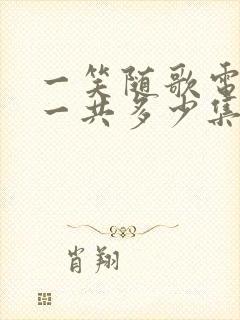 一笑随歌电
一共多少集
肖翔